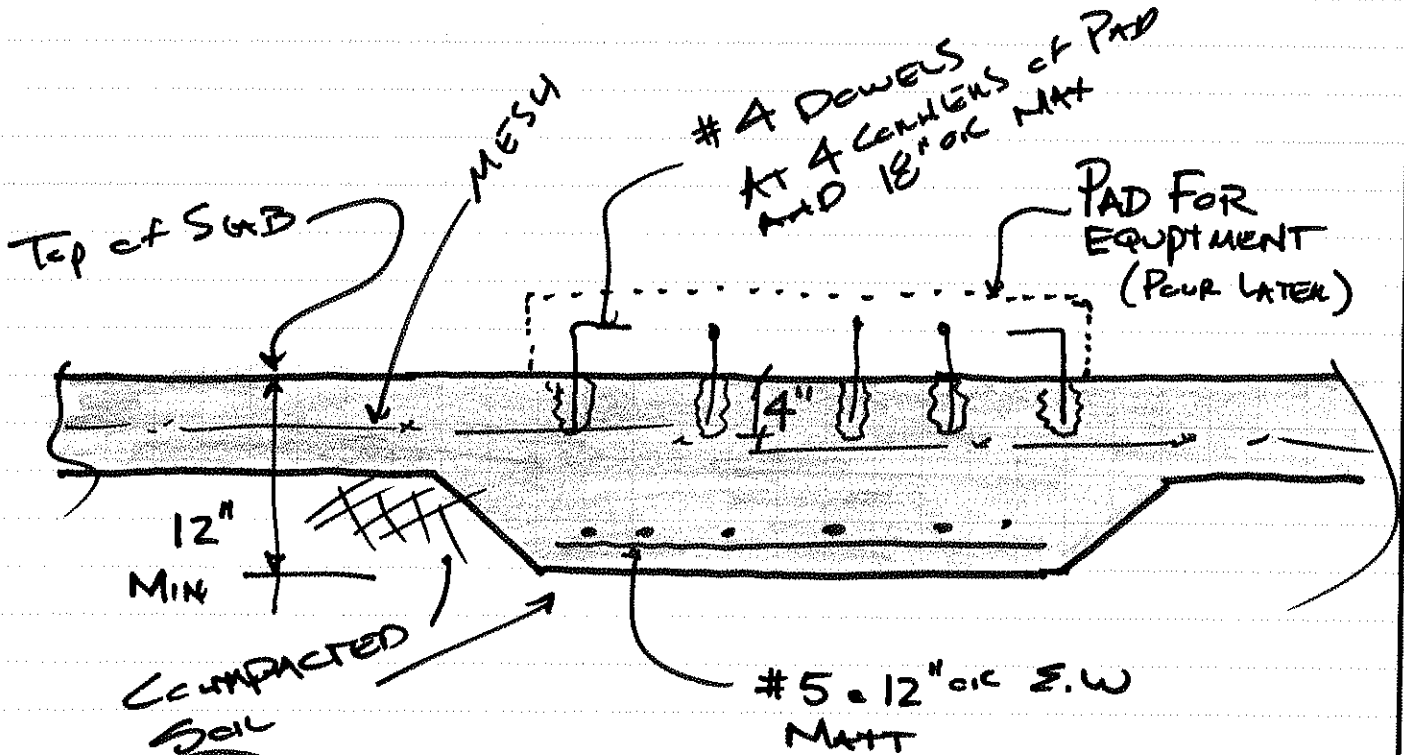 MESH
# 4 DOWELS
AT 4 CORNERS of PAD
AND 18" O.C MAX
PAD FOR
EQUPTMENT
(POUR LATER)
Top of SLAB
4"
12"
MIN
COMPACTED
SOIL
# 5 @ 12" O.C E.W
MATT